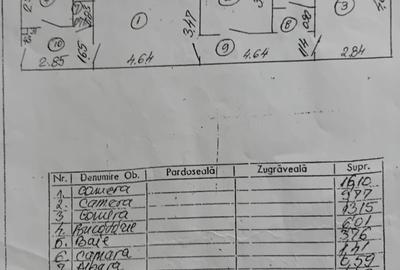 1
3
8
10
1.65
3.47
9
2.85
4.64
4.64
2.84
Nr. Denumire Ob. Pardoseală Zugrăveală Supr.
1. Camera 16,10
2. Camera 9,77
3. Camera 13,15
4. Bucatarie 6,01
5. Baie 3,76
6. Camara 1,41
7. 6,59